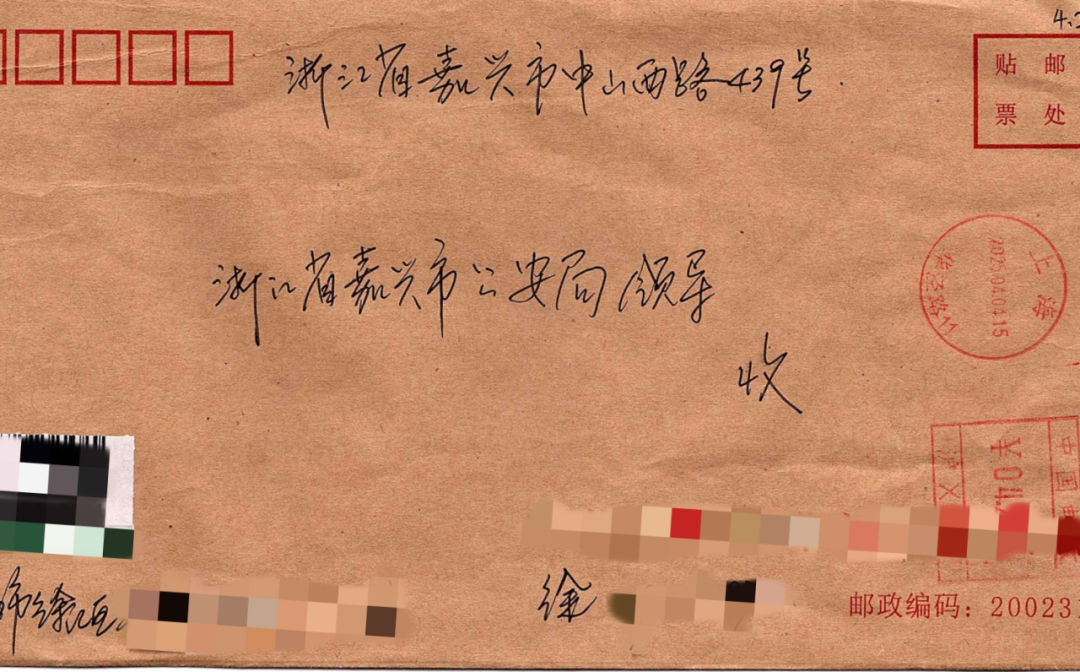 浙江省嘉兴市中山西路439号.
贴邮
票处
浙江省嘉兴市公安局领导
收
上海
2025.04.04.15
中国
¥04
沪
徐
邮政编码：20023